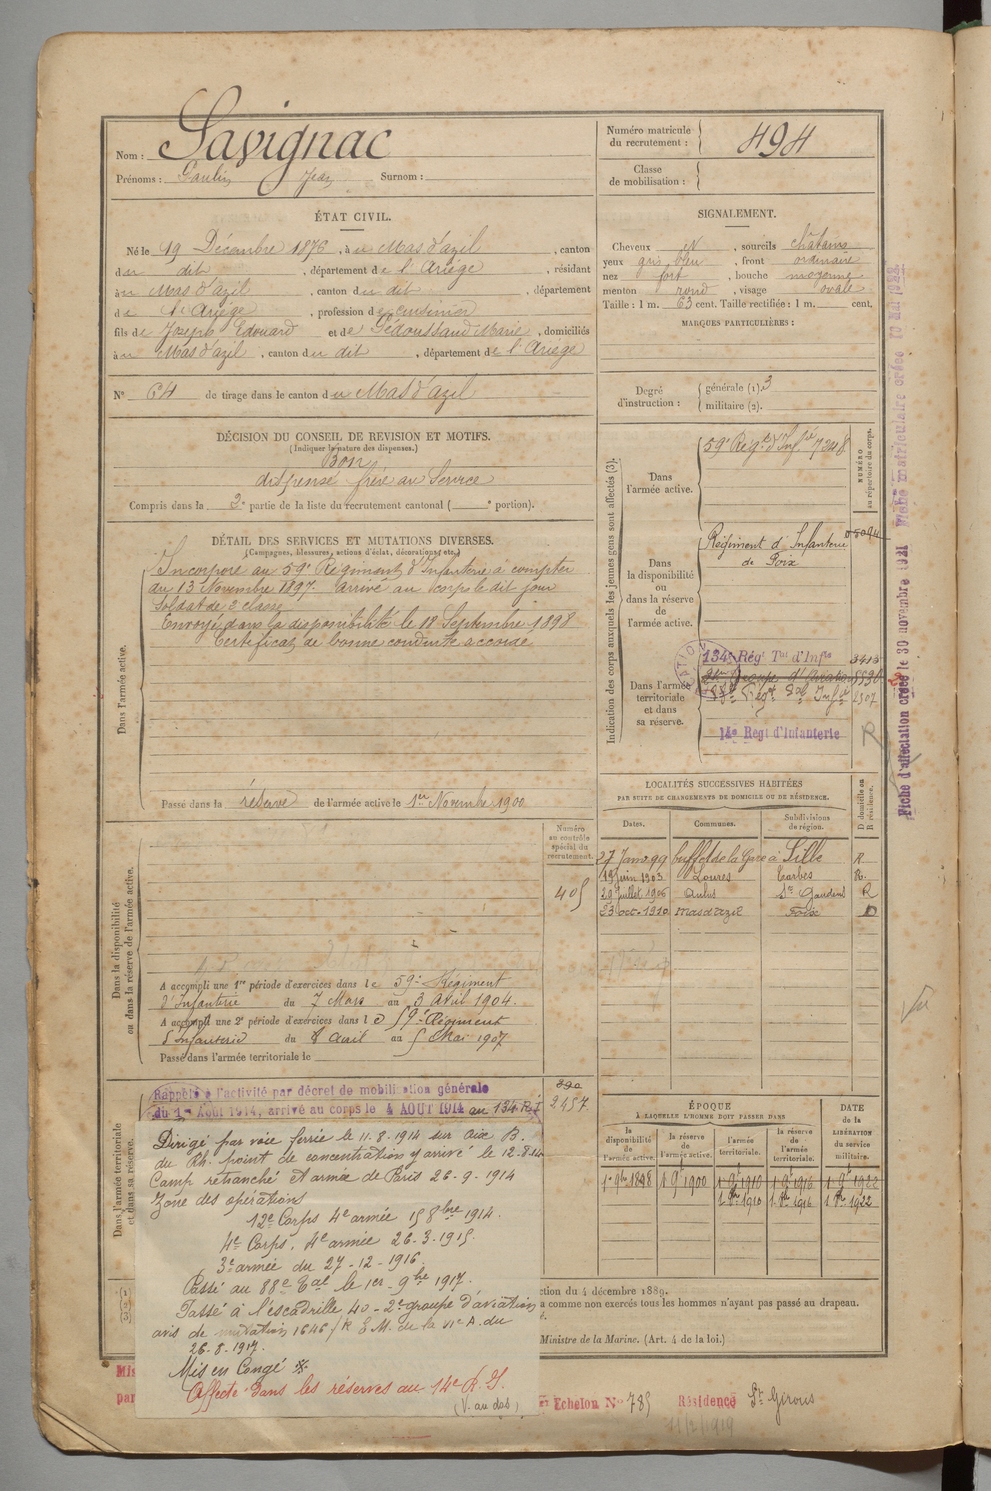 Nom : Savignac
Prénoms : Paulin Jean Surnom :
Numéro matricule
du recrutement : 494
Classe
de mobilisation :
ÉTAT CIVIL.
Né le 19 Décembre 1876, à u Mas d'azil, canton
du dit, département de l'Ariège, résidant
à u Mas d'azil, canton du dit, département
de l'Ariège, profession de cuisinier
fils de Joseph Edouard et de Marie, domiciliés
à u Mas d'azil, canton du dit, département de l'Ariège
N° 64 de tirage dans le canton du Mas d'azil
SIGNALEMENT.
Cheveux, sourcils châtains
yeux gris bleu, front ordinaire
nez fort, bouche moyenne
menton rond, visage ovale
Taille : 1 m. 63 cent. Taille rectifiée : 1 m. cent.
MARQUES PARTICULIÈRES :
Degré
d'instruction :
générale (1). 3
militaire (2).
DÉCISION DU CONSEIL DE REVISION ET MOTIFS.
(Indiquer la nature des dispenses.)
Bon
dispensé frère au Service
Compris dans la 2e partie de la liste du recrutement cantonal ( e portion).
DÉTAIL DES SERVICES ET MUTATIONS DIVERSES.
(Campagnes, blessures, actions d'éclat, décorations, etc.)
Dans l'armée active.
Incorporé au 59e Régiment d'Infanterie à compter
du 13 Novembre 1897. Arrivé au corps le dit jour
Soldat de 2e classe
Envoyé dans la disponibilité le 18 Septembre 1898
Certificat de bonne conduite accordé
Passé dans la réserve de l'armée active le 1er Novembre 1900
Indication des corps auxquels les jeunes gens sont affectés (3).
NUMÉRO
au répertoire du corps.
Dans
l'armée active.
59e Régt d'Infie 7248
Dans
la disponibilité
ou
dans la réserve
de
l'armée active.
Régiment d'Infanterie
de Foix
Dans l'armée
territoriale
et dans
sa réserve.
134e Régt Tal d'Infie 3413
Groupe d'aviation
88e Régt Tal Infie 2507
14e Regt d'Infanterie
R
Fiche d'affectation créée le 30 novembre 1921 Fiche matriculaire créée 10 Mai 1922
LOCALITÉS SUCCESSIVES HABITÉES
PAR SUITE DE CHANGEMENTS DE DOMICILE OU DE RÉSIDENCE.
D domicile ou
R résidence.
Dates. Communes. Subdivisions
de région.
27 Janv 99 buffet de la Gare à Lille R
19 juin 1903 Loures Tarbes R.
29 Juillet 1906 Aulus St Gaudens R
23 oct. 1910 Mas d'azil Foix D
Dans la disponibilité
ou dans la réserve de l'armée active.
Numéro
au contrôle
spécial du
recrutement.
405
A accompli une 1re période d'exercices dans le 59e Régiment
d'Infanterie du 7 Mars au 3 Avril 1904.
A accompli une 2e période d'exercices dans le 59e Régiment
d'Infanterie du 8 Avril au 5 Mai 1907
Passé dans l'armée territoriale le
Dans l'armée territoriale
et dans sa réserve.
390
2457
Rappelé à l'activité par décret de mobilisation générale
du 1er Août 1914, arrivé au corps le 4 AOUT 1914 au 134 R.I
Dirigé par voie ferrée le 11.8.1914 sur Aix B.
du Rh. point de concentration y arrivé le 12.8.14
Camp retranché et armée de Paris 26-9-1914
Zone des opérations
12e Corps 4e armée 15 8bre 1914.
4e Corps, 4e armée 26-3-1915.
3e armée du 27-12-1916
Passé au 88e Tal le 1er 9bre 1917.
Passé à l'escadrille 40-2e groupe d'aviation
avis de mutation 1646/R E.M. de la VIe A. du
26.8.1917.
Mis en Congé
Affecté dans les réserves au 14e R.I.
(V. au dos)
ÉPOQUE
À LAQUELLE L'HOMME DOIT PASSER DANS
DATE
de la
LIBÉRATION
du service
militaire.
la
disponibilité
de
l'armée active.
la réserve
de
l'armée active.
l'armée
territoriale.
la réserve
de
l'armée
territoriale.
1er 9bre 1898 1er 9bre 1900 1er 9bre 1910 1er 9bre 1916 1er 9bre 1922
1er 8bre 1910 1er 8bre 1916 1er 8bre 1922
ction du 4 décembre 1889.
a comme non exercés tous les hommes n'ayant pas passé au drapeau.
Ministre de la Marine. (Art. 4 de la loi.)
Mis
par
Echelon No 785 Résidence St Girons